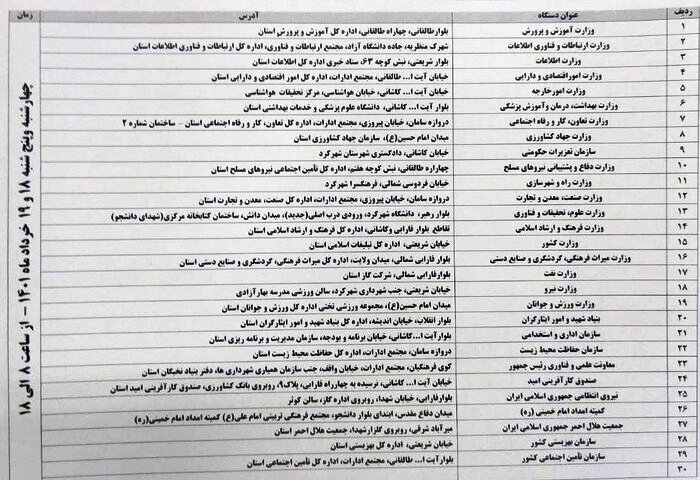 ردیف عنوان دستگاه آدرس زمان
۱ وزارت آموزش و پرورش بلوارطالقانی، چهاراه طالقانی، اداره کل آموزش و پرورش استان
۲ وزارت ارتباطات و فناوری اطلاعات شهرک منظریه، جاده دانشگاه آزاد، مجتمع ارتباطات و فناوری، اداره کل ارتباطات و فناوری اطلاعات استان
۳ وزارت اطلاعات بلوار شریعتی، نبش کوچه ۶۳، ستاد خبری اداره کل اطلاعات استان
۴ وزارت اموراقتصادی و دارایی خیابان آیت ا... طالقانی، مجتمع ادارات، اداره کل امور اقتصادی و دارایی استان
۵ وزارت امورخارجه خیابان آیت ا... کاشانی، خیابان هواشناسی، مرکز تحقیقات هواشناسی
۶ وزارت بهداشت، درمان وآموزش پزشکی بلوار آیت ا... کاشانی، دانشگاه علوم پزشکی و خدمات بهداشتی استان
۷ وزارت تعاون، کار و رفاه اجتماعی دروازه سامان، خیابان پیروزی، مجتمع ادارات، اداره کل تعاون، کار و رفاه اجتماعی استان - ساختمان شماره ۲
۸ وزارت جهاد کشاورزی میدان امام حسین(ع)، سازمان جهاد کشاورزی استان
۹ سازمان تعزیرات حکومتی خیابان کاشانی، دادگستری شهرستان شهرکرد
۱۰ وزارت دفاع و پشتیبانی نیروهای مسلح چهاراه طالقانی، نبش کوچه هفتم، اداره کل تأمین اجتماعی نیروهای مسلح استان
۱۱ وزارت راه و شهرسازی خیابان فردوسی شمالی، فرهنگسرا شهرکرد
۱۲ وزارت صنعت، معدن و تجارت دروازه سامان، خیابان پیروزی، مجتمع ادارات، اداره کل صنعت، معدن و تجارت استان
۱۳ وزارت علوم، تحقیقات و فناوری بلوار رهبر، دانشگاه شهرکرد، ورودی درب اصلی(جدید)، میدان دانش، ساختمان کتابخانه مرکزی(شهدای دانشجو)
۱۴ وزارت فرهنگ و ارشاد اسلامی تقاطع بلوار فارابی وکاشانی، اداره کل فرهنگ و ارشاد اسلامی استان
۱۵ وزارت کشور خیابان شریعتی، اداره کل تبلیغات اسلامی استان
۱۶ وزارت میراث فرهنگی، گردشگری و صنایع دستی بلوار فارابی شمالی، میدان ولایت، اداره کل میراث فرهنگی، گردشگری و صنایع دستی استان
۱۷ وزارت نفت بلوارفارابی شمالی، شرکت گاز استان
۱۸ وزارت نیرو خیابان شریعتی، جنب شهرداری شهرکرد، سالن ورزشی مدرسه بهارآزادی
۱۹ وزارت ورزش و جوانان میدان امام حسین(ع)، مجموعه ورزشی تختی اداره کل ورزش و جوانان استان
۲۰ بنیاد شهید و امور ایثارگران بلوار انقلاب، خیابان اندیشه، اداره کل بنیاد شهید و امور ایثارگران استان
۲۱ سازمان اداری و استخدامی بلوارآیت ا...کاشانی، خیابان برنامه و بودجه، سازمان مدیریت و برنامه ریزی استان
۲۲ سازمان حفاظت محیط زیست دروازه سامان، مجتمع ادارات، اداره کل حفاظت محیط زیست استان
۲۳ معاونت علمی و فناوری رئیس جمهور کوی فرهنگیان، مجتمع ادارات، خیابان واقف، جنب سازمان همیاری شهرداری ها، دفتر بنیاد نخبگان استان
۲۴ صندوق کارآفرینی امید خیابان آیت ا... کاشانی، نرسیده به چهارراه فارابی، پلاک۹، روبروی بانک کشاورزی، صندوق کارآفرینی امید استان
۲۵ نیروی انتظامی جمهوری اسلامی ایران بلوارفارابی، خیابان شهدا، روبروی اداره گاز، سالن کوثر
۲۶ کمیته امداد امام خمینی (ره) میدان دفاع مقدس، ابتدای بلوار دانشجو، مجتمع فرهنگی تربیتی امام علی(ع) کمیته امداد امام خمینی(ره)
۲۷ جمعیت هلال احمر جمهوری اسلامی ایران میرآباد شرقی، روبروی گلزارشهدا، جمعیت هلال احمر استان
۲۸ سازمان بهزیستی کشور خیابان شریعتی، اداره کل بهزیستی استان
۲۹ سازمان تأمین اجتماعی کشور بلوارآیت ا... طالقانی، مجتمع ادارات، اداره کل تأمین اجتماعی استان
۳۰
چهارشنبه وپنج شنبه ۱۸ و ۱۹ خرداد ماه ۱۴۰۱ - از ساعت ۸ الی ۱۸